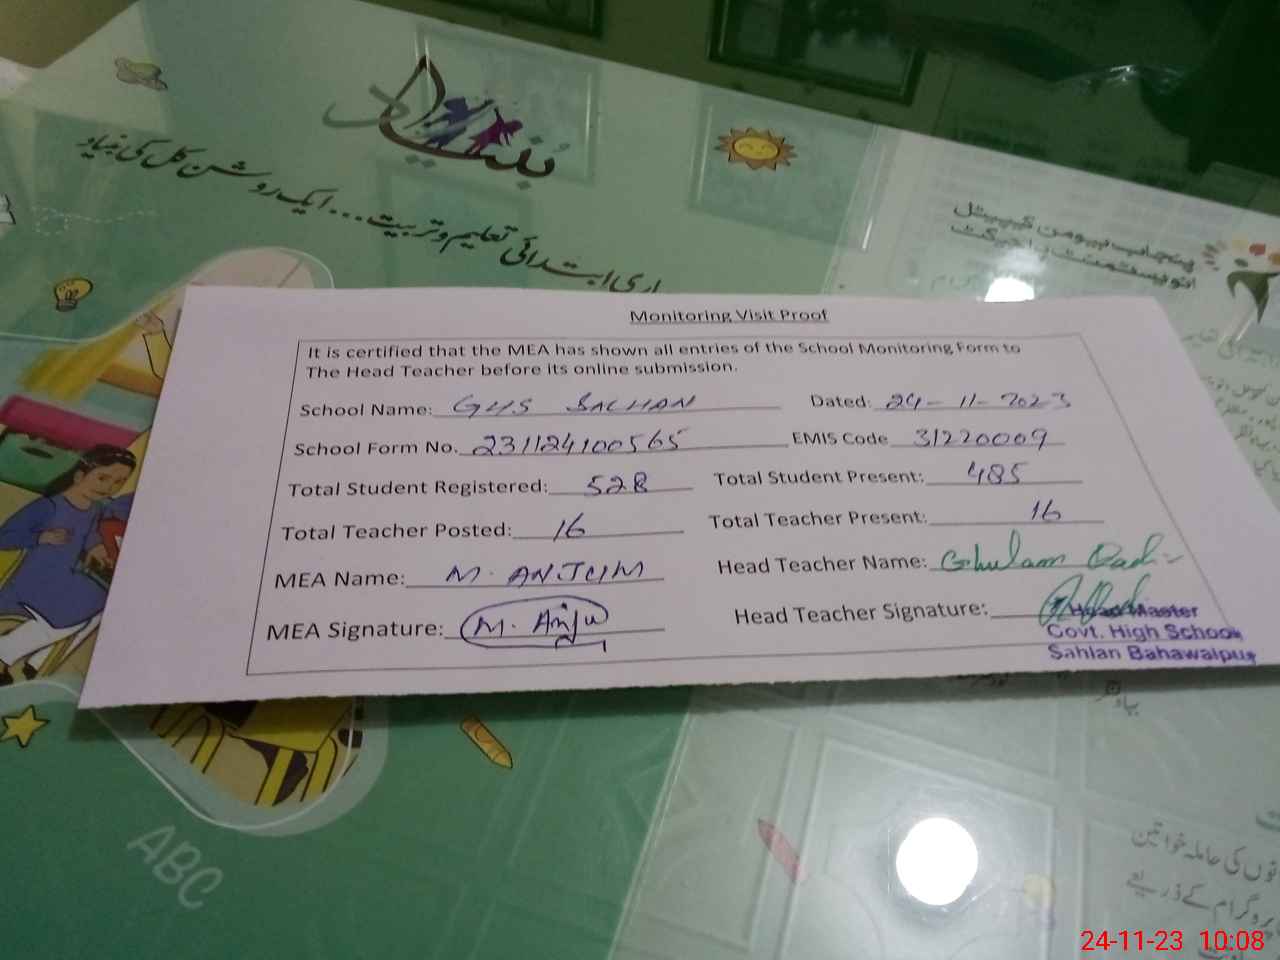 بُنیاد
ابتدائی تعلیم و تربیت... ایک روشن کل کی بنیاد
پنجاب ہیومن کیپیٹل
انویسٹمنٹ پراجیکٹ
Monitoring Visit Proof
It is certified that the MEA has shown all entries of the School Monitoring Form to
The Head Teacher before its online submission.
School Name: GHS SALHAN Dated: 24-11-2023
School Form No. 231124100565 EMIS Code 31220009
Total Student Registered: 528 Total Student Present: 485
Total Teacher Posted: 16 Total Teacher Present: 16
MEA Name: M. ANJUM Head Teacher Name: Ghulam Qadir
MEA Signature: M. Anju Head Teacher Signature:
Head Master
Govt. High School
Sahlan Bahawalpur
ABC
کی حاملہ خواتین
پروگرام کے ذریعے
24-11-23 10:08